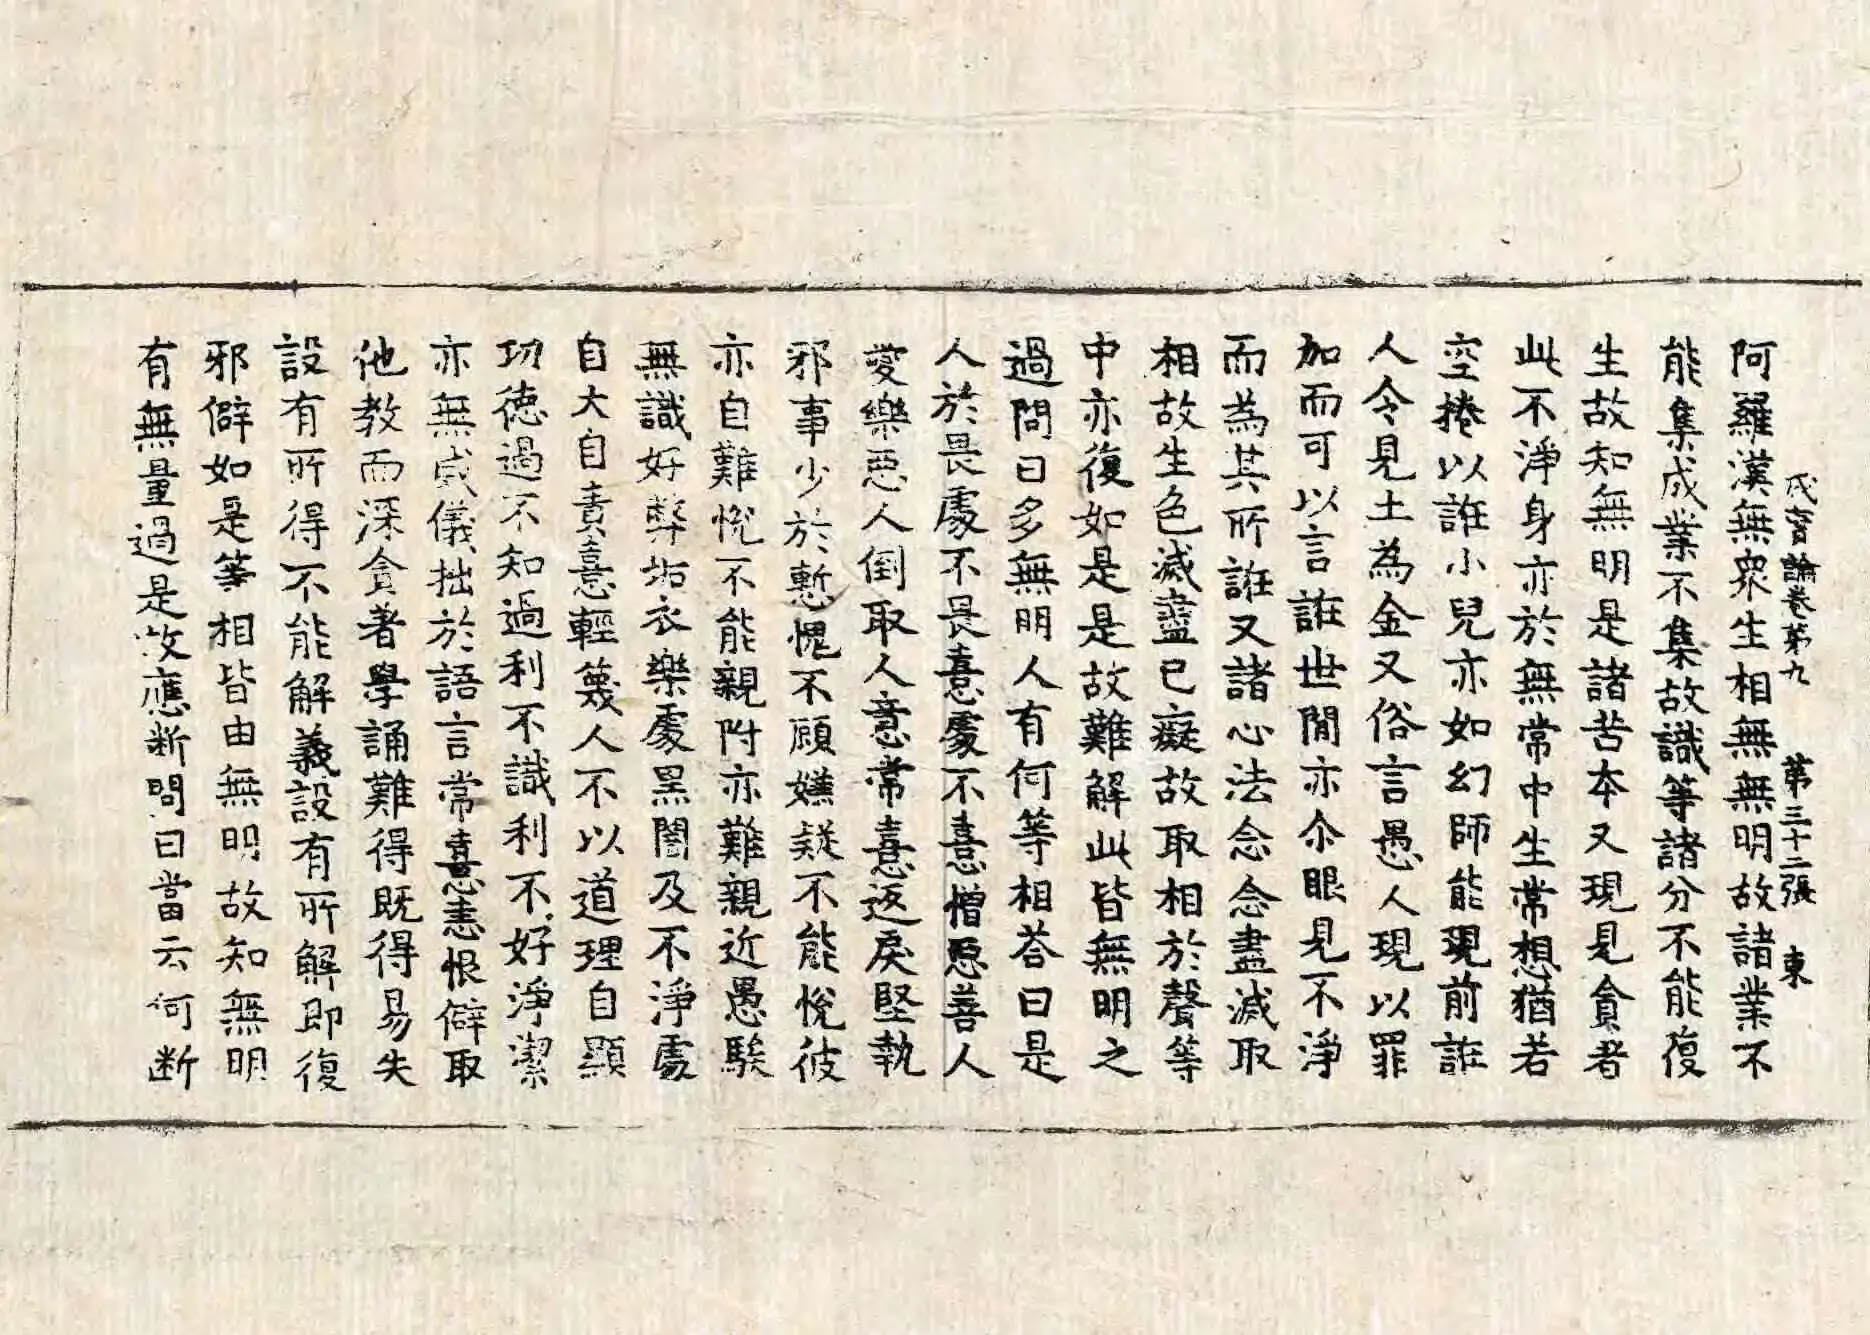 成實論卷第九 第三十二張 東
阿羅漢無衆生相無無明故諸業不
能集成業不集故識等諸分不能復
生故知無明是諸苦本又現見貪者
此不淨身亦於無常中生常想猶若
空捲以誑小兒亦如幻師能現前誑
人令見土為金又俗言愚人現以罪
加而可以言誑世間亦尒眼見不淨
而為其所誑又諸心法念念盡滅取
相故生色滅盡已癡故取相於聲等
中亦復如是是故難解此皆無明之
過問曰多無明人有何等相荅曰是
人於畏處不畏憙處不憙憎惡善人
愛樂惡人倒取人意常憙返戾堅執
邪事少於慙愧不顧嫌疑不能悅彼
亦自難悅不能親附亦難親近愚騃
無識好弊垢衣樂處黑闇及不淨處
自大自責憙輕蔑人不以道理自顯
功德過不知過利不識利不好淨潔
亦無威儀拙於語言常憙恚恨僻取
他教而深貪著學誦難得既得易失
設有所得不能解義設有所解即復
邪僻如是等相皆由無明故知無明
有無量過是故應断問曰當云何断